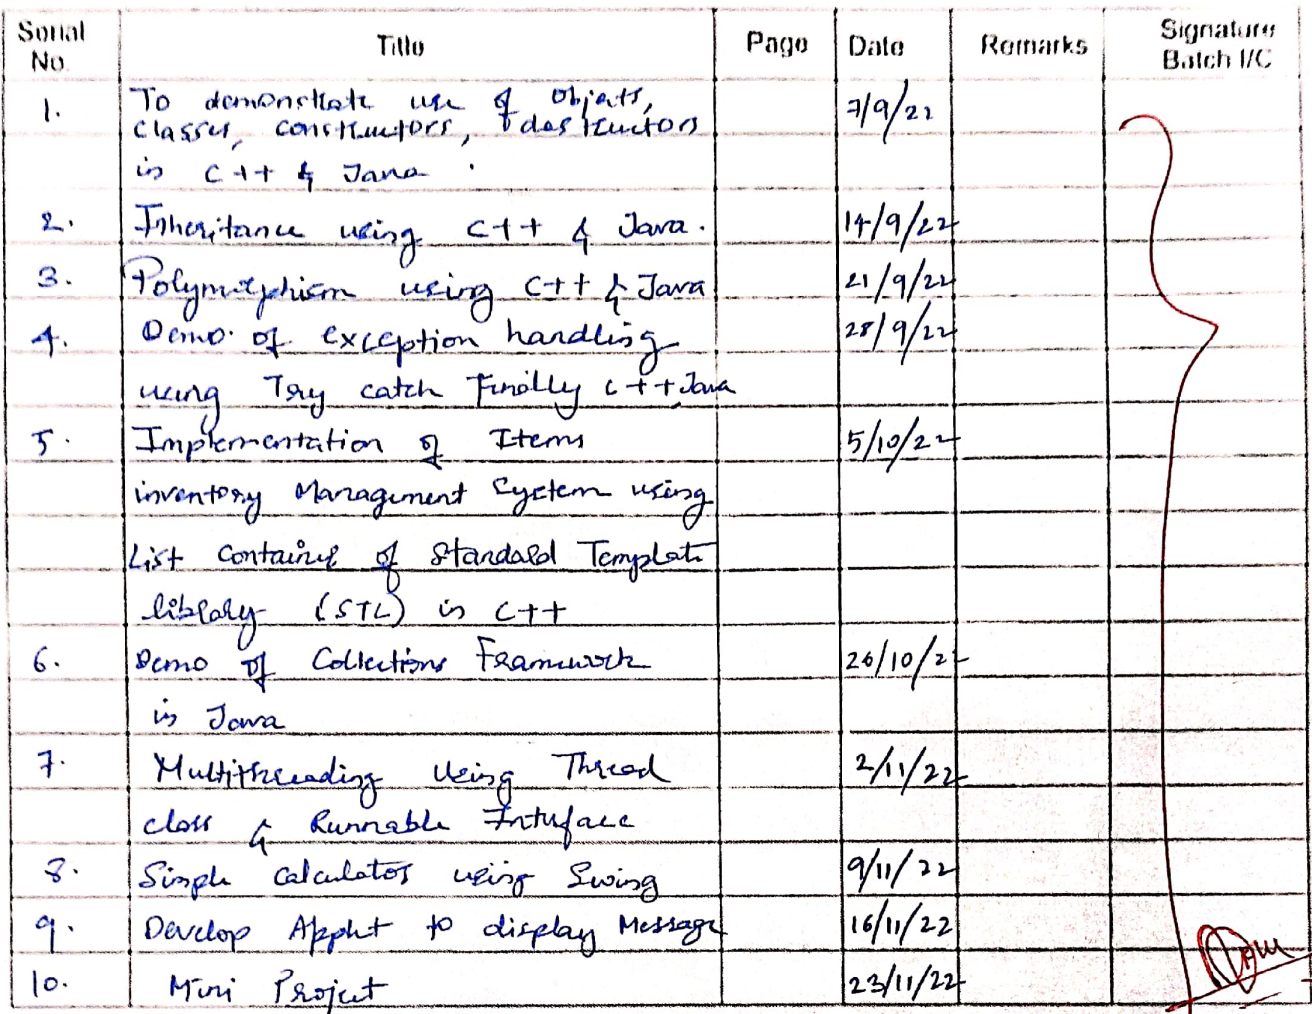 Serial No. Title Page Date Remarks Signature Batch I/C
1. To demonstrate use of Objects, 7/9/22
classes, constructors, & destructors
in C++ & Java.
2. Inheritance using C++ & Java. 14/9/22
3. Polymorphism using C++ & Java 21/9/22
4. Demo. of exception handling 28/9/22
using Try catch Finally C++, Java
5. Implementation of Items 5/10/22
inventory Management System using
List Container of Standard Template
library (STL) in C++
6. Demo of Collections Framework 26/10/22
in Java
7. Multithreading Using Thread 2/11/22
class & Runnable Interface
8. Simple calculator using Swing 9/11/22
9. Develop Applet to display Message 16/11/22
10. Mini Project 23/11/22